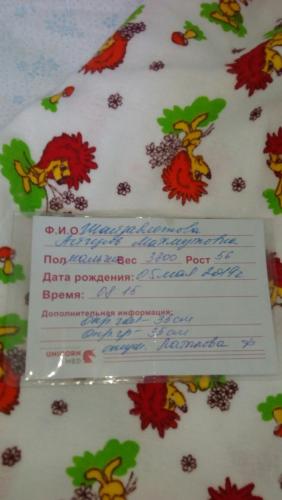 Ф.И.О Шайхаметова
Махмутовна
Пол мальчик Вес 3700 Рост 56
Дата рождения: 05 мая 2019г
Время: 08 15
Дополнительная информация:
окр гол - 35 см
окр гр - 35 см
UNICORN
MED